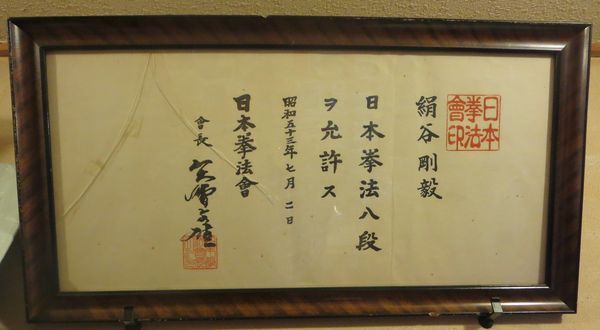 日本
拳法
會印
絹谷剛毅
日本拳法八段
ヲ允許ス
昭和五十三年七月二日
日本拳法會
會長